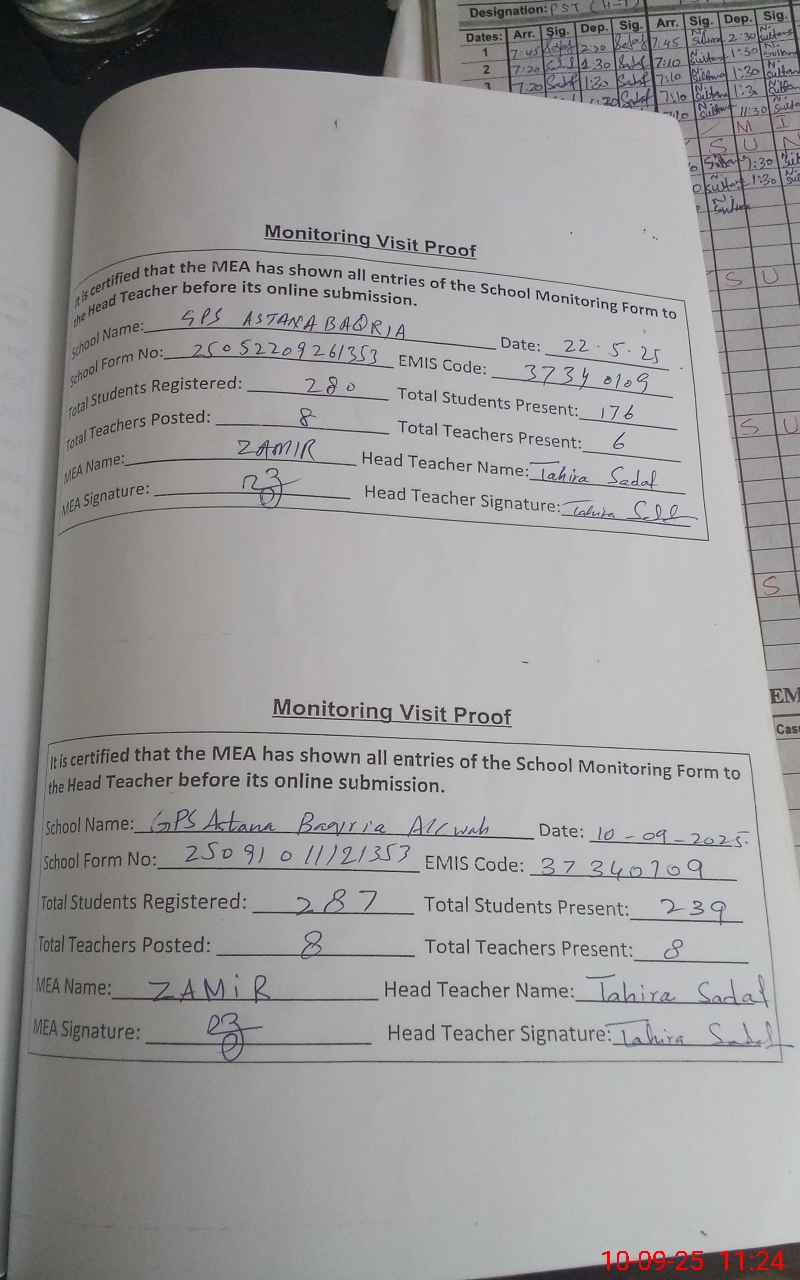 Designation: PST
Dates: Arr. Sig. Dep. Sig. Arr. Sig. Dep. Sig.
1 7:45 Sadaf 2:30 Sadaf 7:45 2:30
2 7:20 Sadaf 1:30 Sadaf 7:10 1:30
3 7:20 Sadaf 1:30 Sadaf 7:10 1:30
Sadaf 7:10 11:30
M I
S U N
1:30
1:30
S U
S U
S
EM
Monitoring Visit Proof
It is certified that the MEA has shown all entries of the School Monitoring Form to
the Head Teacher before its online submission.
School Name: GPS ASTANA BAQRIA Date: 22.5.25
School Form No: 25052209261353 EMIS Code: 37340109
Total Students Registered: 280 Total Students Present: 176
Total Teachers Posted: 8 Total Teachers Present: 6
MEA Name: ZAMIR Head Teacher Name: Tahira Sadaf
MEA Signature: Head Teacher Signature: Tahira Sadaf
Monitoring Visit Proof
It is certified that the MEA has shown all entries of the School Monitoring Form to
the Head Teacher before its online submission.
School Name: GPS Astana Baqria Date: 10-09-2025.
School Form No: 25091011121353 EMIS Code: 37340109
Total Students Registered: 287 Total Students Present: 239
Total Teachers Posted: 8 Total Teachers Present: 8
MEA Name: ZAMiR Head Teacher Name: Tahira Sadaf
MEA Signature: Head Teacher Signature: Tahira Sadaf
10-09-25 11:24